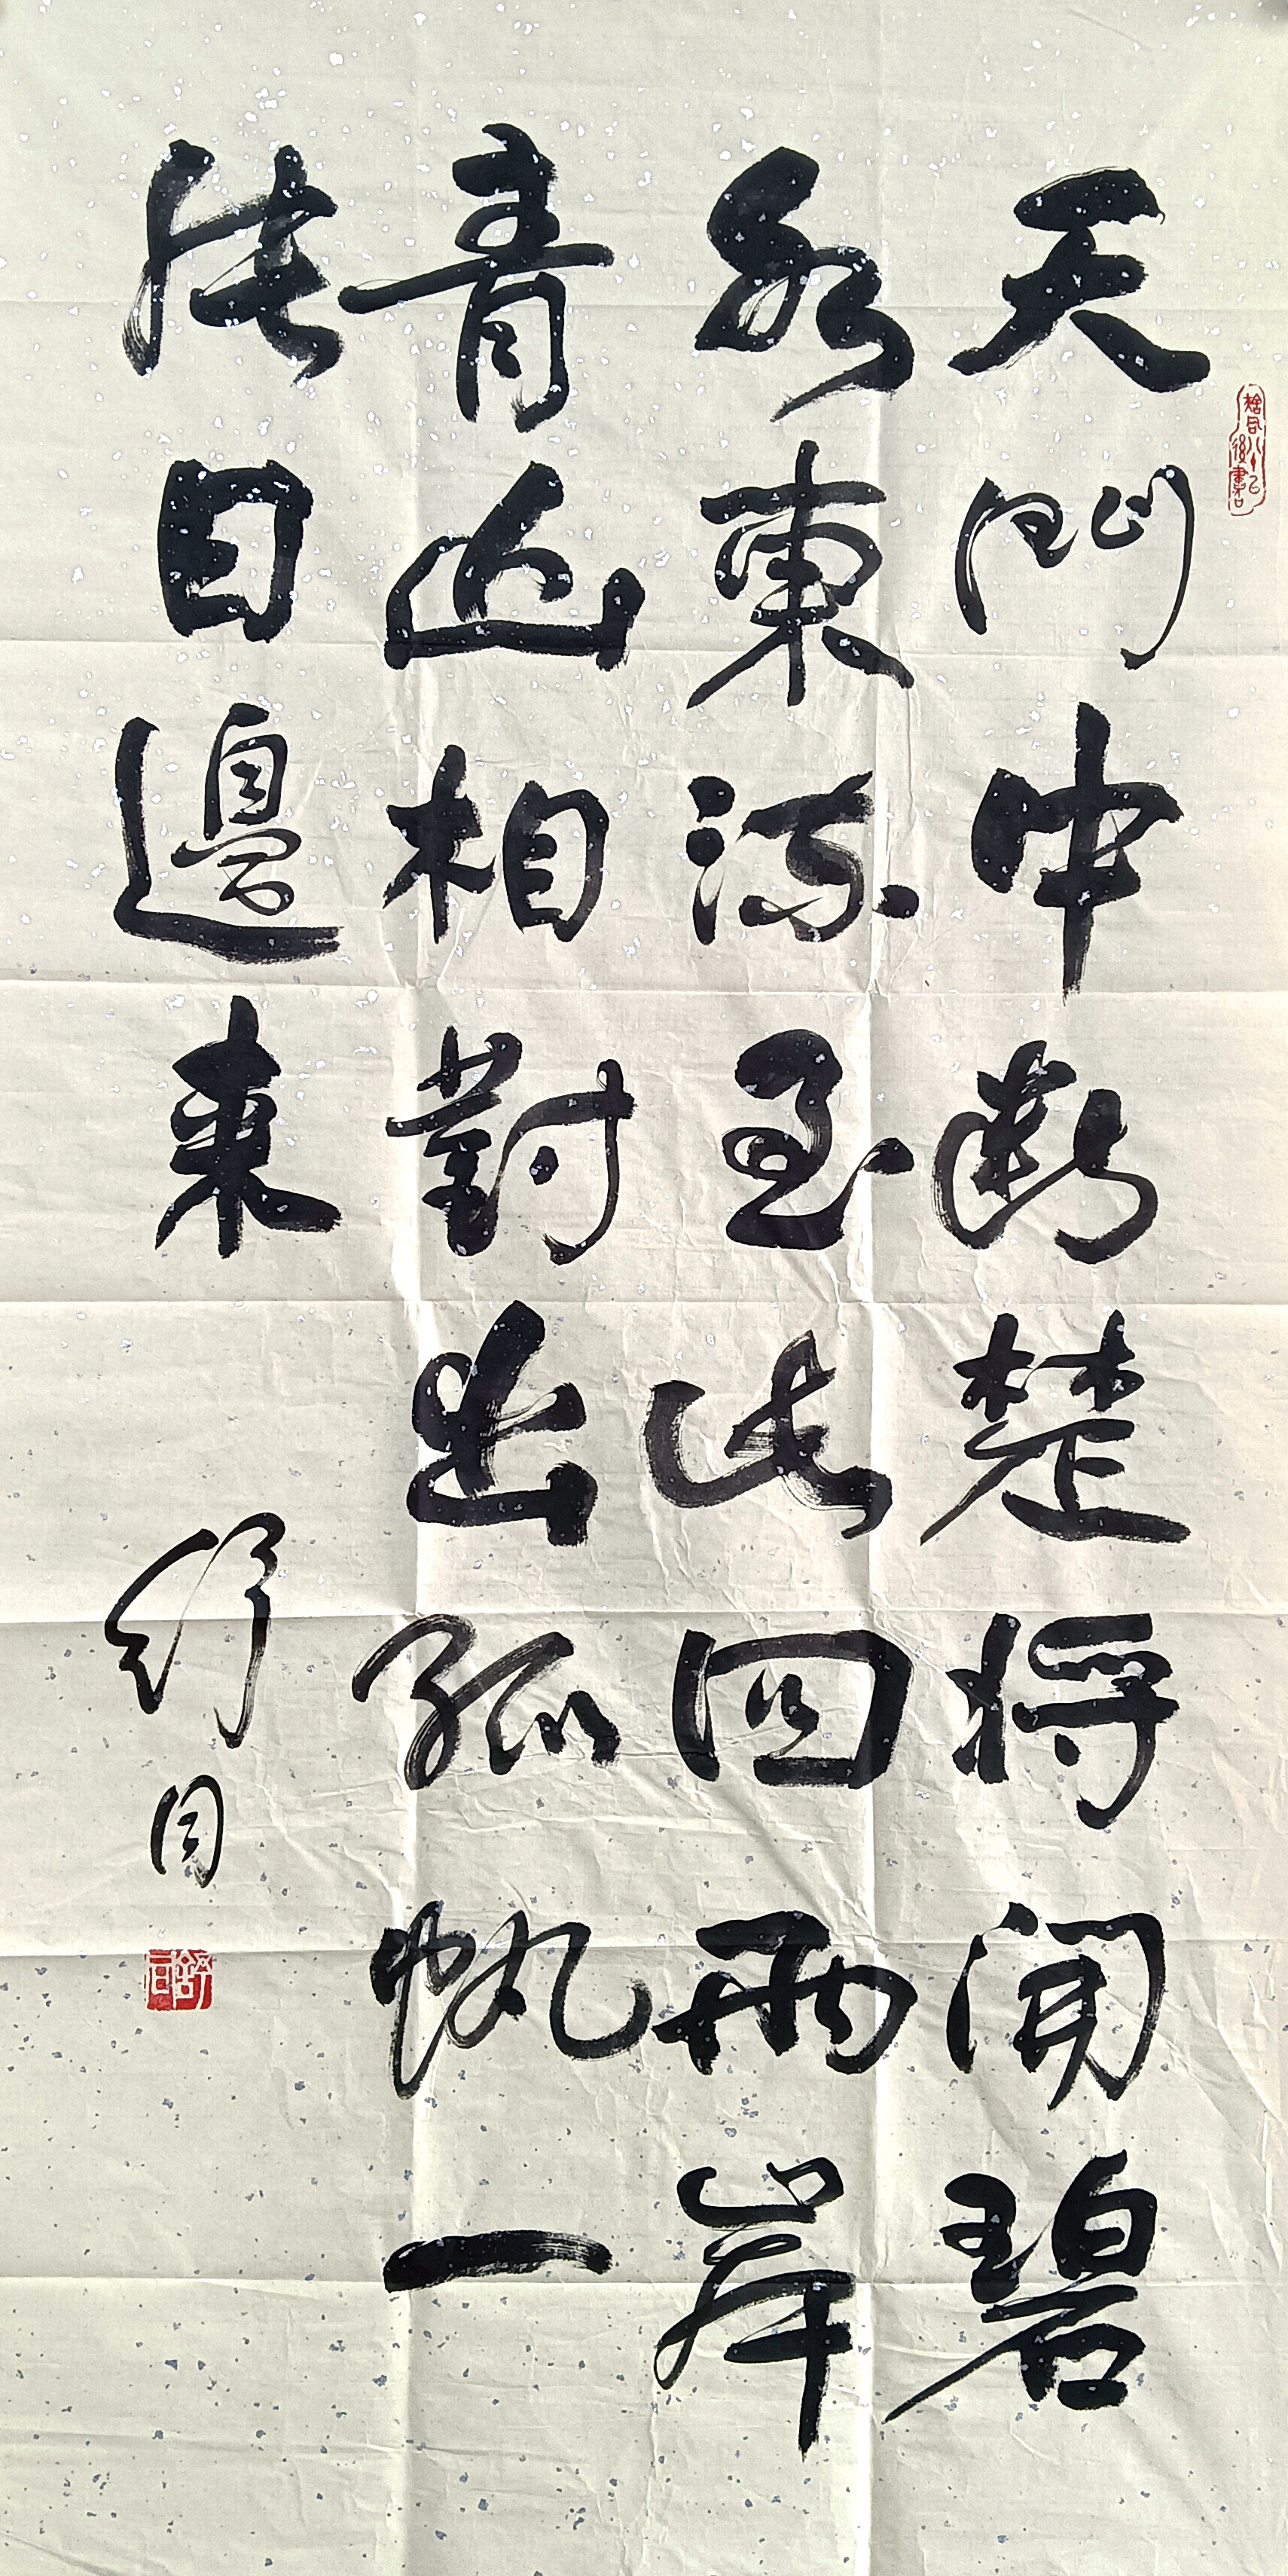 天門中斷楚將開碧
水東流至此回兩岸
青山相對出孤帆一
片日邊來
舒同
舒同